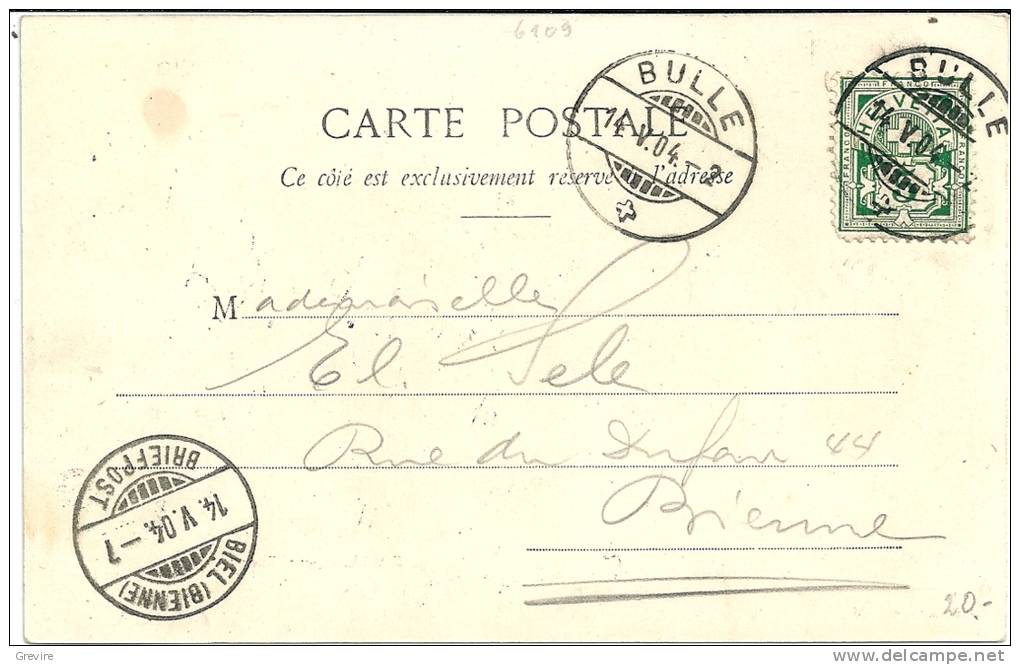 6909
CARTE POSTALE
Ce côié est exclusivement réservé à l'adresse
BULLE
14. V. 04. – 2
BULLE
V. 04
FRANCO
HELVETIA
FRANCO
FRANCO
Mademoiselle
El. Pele
Rue du Dufour 44
Brienne
BRIEFPOST
14. V. 04. – 7
BIEL (BIENNE)
20.-
Grevire
delcampe.net